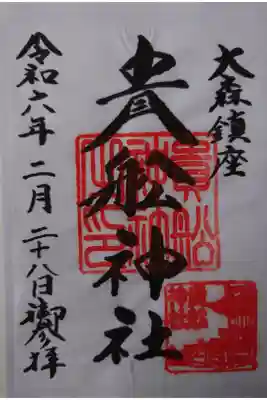 大森鎮座
貴舩神社
令和六年二月二十八日御参拝